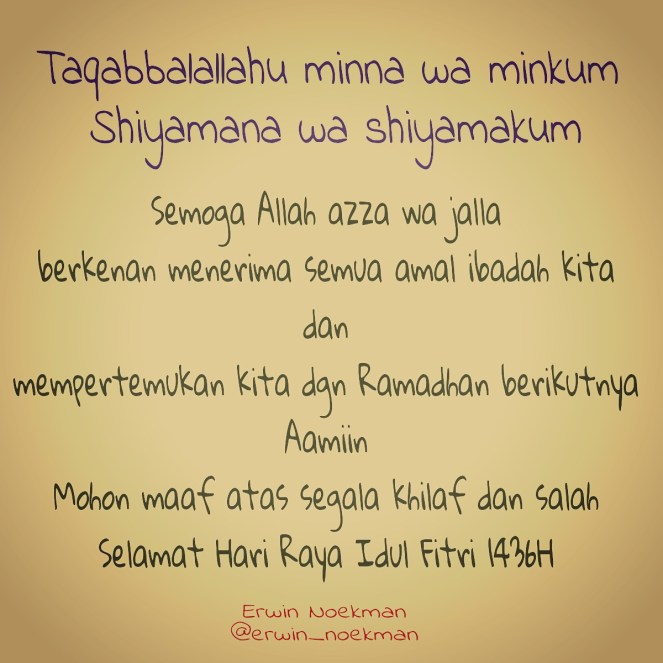 Taqabbalallahu minna wa minkum
Shiyamana wa shiyamakum
Semoga Allah azza wa jalla
berkenan menerima semua amal ibadah kita
dan
mempertemukan kita dgn Ramadhan berikutnya
Aamiin
Mohon maaf atas segala khilaf dan salah
Selamat Hari Raya Idul Fitri 1436H
Erwin Noekman
@erwin_noekman